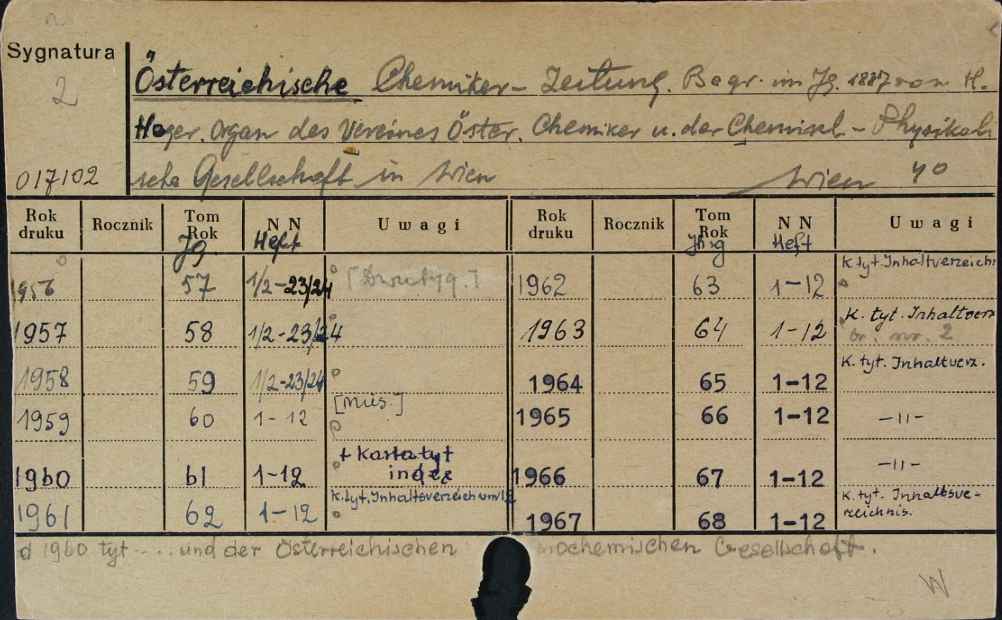 Sygnatura
2
017102
Österreichische Chemiker-Zeitung. Begr. im Jg. 1887 von H.
Heger. Organ des Vereines Öster. Chemiker u. der Chemisch-Physikali
sche Gesellschaft in Wien
Wien 4o
Rok druku Rocznik Tom Rok Jg. NN Heft Uwagi Rok druku Rocznik Tom Rok Jhg NN Heft Uwagi
1956 57 1/2-23/24 1962 63 1-12 K. tyt. Inhaltverzeichn
1957 58 1/2-23/24 1963 64 1-12 K. tyt. Inhaltverz
br. nr. 2
1958 59 1/2-23/24 1964 65 1-12 K. tyt. Inhaltverz.
1959 60 1-12 1965 66 1-12 -11-
1960 61 1-12 + Karta tyt index 1966 67 1-12 -11-
1961 62 1-12 K. tyt. 1967 68 1-12 K. tyt. Inhaltsve-
rzeichnis.
d 1960 tyt ..... und der Österreichischen ochemischen Gesellschaft.
W